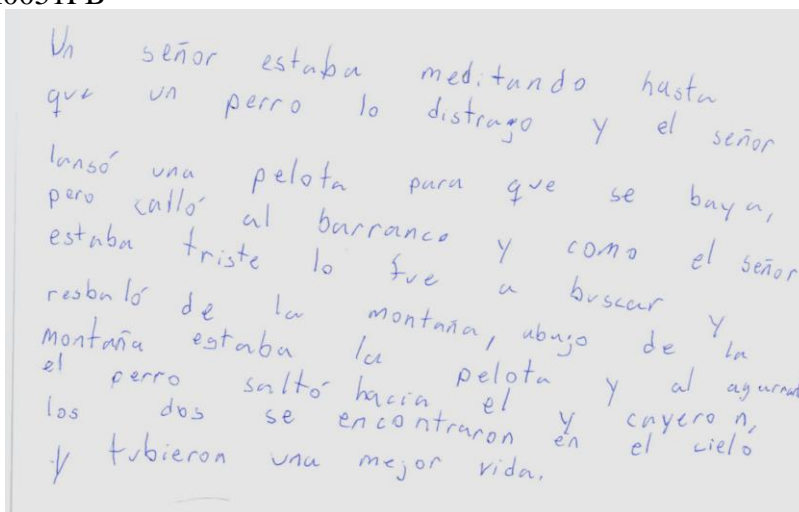 Un señor estaba meditando hasta
que un perro lo distrago y el señor
lansó una pelota para que se baya,
pero calló al barranco y como el señor
estaba triste lo fue a buscar y
resbaló de la montaña, abajo de la
montaña estaba la pelota y al agarrar
el perro saltó hacia el y cayeron,
los dos se encontraron en el cielo
y tubieron una mejor vida.